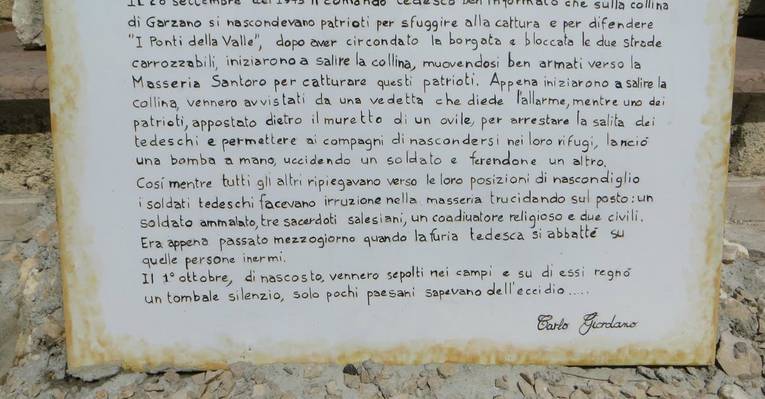 IL 28 settembre del 1943 il comando tedesco ben informato che sulla collina
di Garzano si nascondevano patrioti per sfuggire alla cattura e per difendere
"I Ponti della Valle", dopo aver circondato la borgata e bloccata le due strade
carrozzabili, iniziarono a salire la collina, muovendosi ben armati verso la
Masseria Santoro per catturare questi patrioti. Appena iniziarono a salire la
collina, vennero avvistati da una vedetta che diede l'allarme, mentre uno dei
patrioti, appostato dietro il muretto di un ovile, per arrestare la salita dei
tedeschi e permettere ai compagni di nascondersi nei loro rifugi, lanciò
una bomba a mano, uccidendo un soldato e ferendone un altro.
Cosí mentre tutti gli altri ripiegavano verso le loro posizioni di nascondiglio
i soldati tedeschi facevano irruzione nella masseria trucidando sul posto: un
soldato ammalato, tre sacerdoti salesiani, un coadiuatore religioso e due civili.
Era appena passato mezzogiorno quando la furia tedesca si abbatté su
quelle persone inermi.
Il 1° ottobre, di nascosto, vennero sepolti nei campi e su di essi regnò
un tombale silenzio, solo pochi paesani sapevano dell'eccidio.....
Carlo Giordano